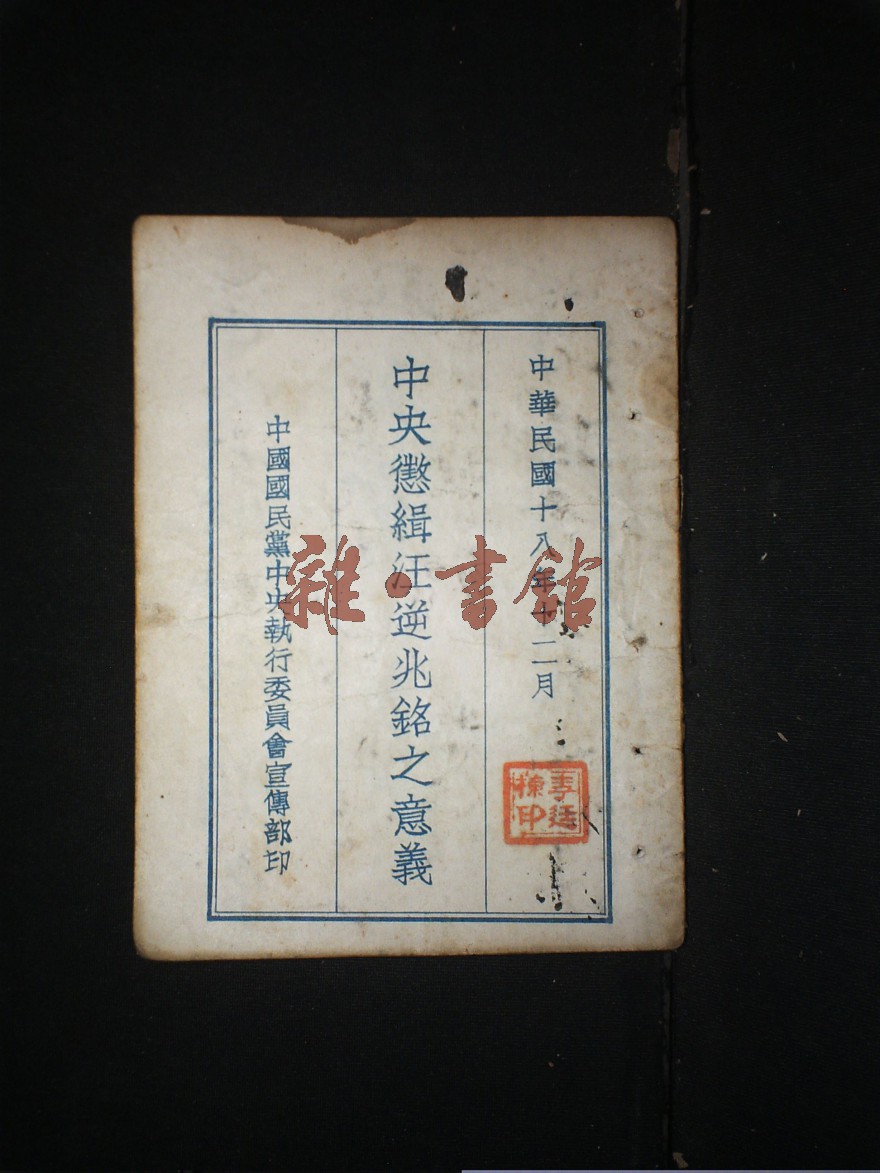 中華民國十八年十二月
中央懲緝汪逆兆銘之意義
中國國民黨中央執行委員會宣傳部印
雜·書館